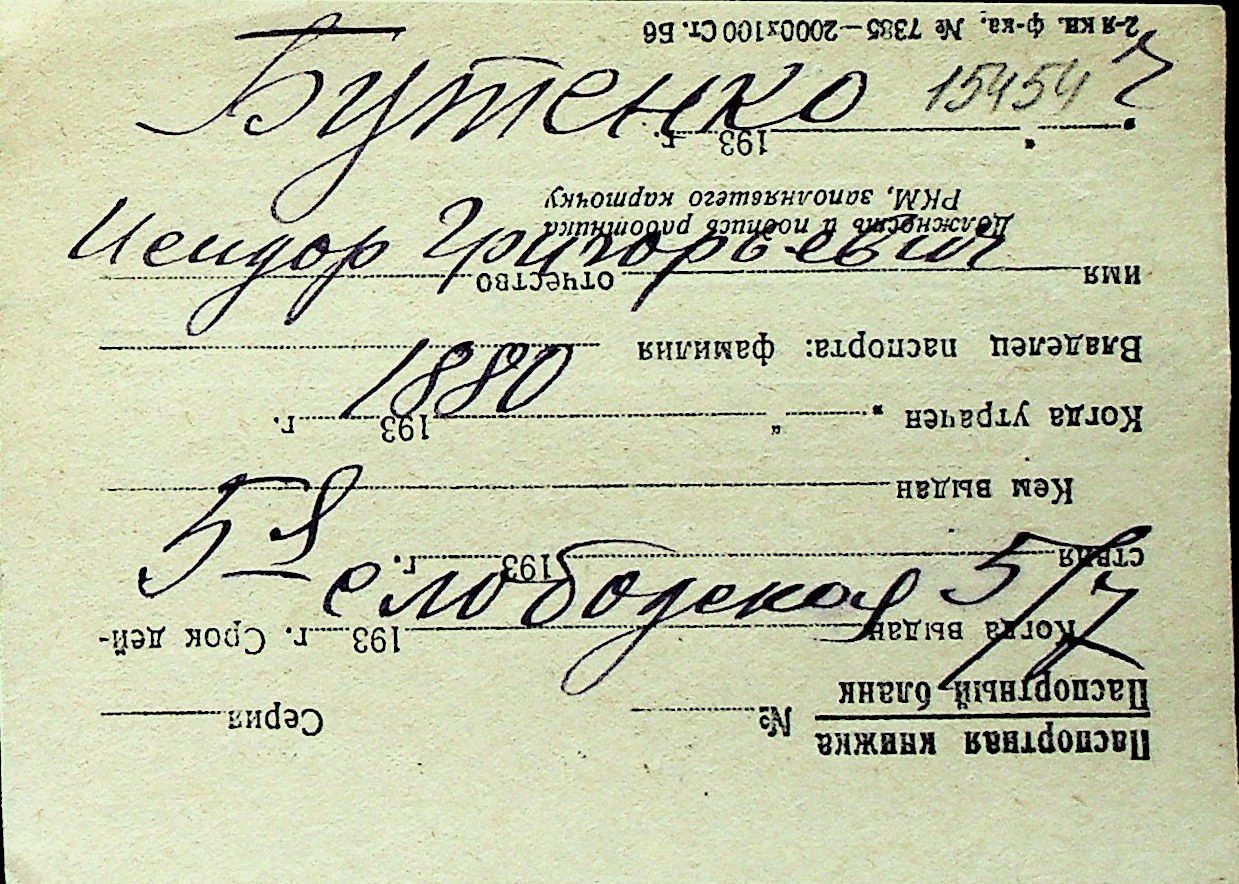 Бутенко 15454
Исидор Григорьевич
1880
5я
слободская 5/7
Паспортная книжка № Серия
Паспортный бланк
Когда выдан 193 г. Срок дей-
ствия 193 г.
Кем выдан
Когда утрачен „ “ 193 г.
Владелец паспорта: фамилия
имя отчество
Должность и подпись работника
РКМ, заполнявшего карточку
„ “ 193 г.
2-я кн. ф-ка, № 7385—2000х100 Ст. Бб